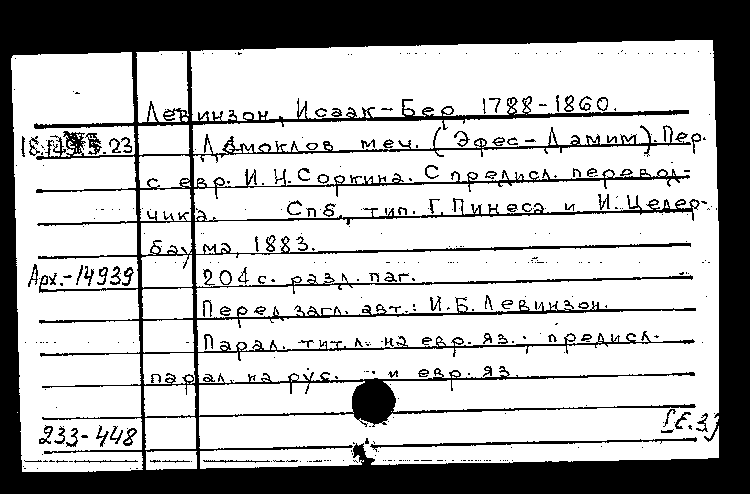 Левинзон, Исаак-Бер, 1788-1860.
Дамоклов меч. (Эфес-Дамим). Пер.
с евр. И.Н.Соркина. С предисл. перевод-
чика. Спб., тип. Г.Пинеса и И.Цедер-
баума, 1883.
Арх.-14939 204 с. разд. паг.
Перед загл. авт.: И.Б.Левинзон.
Парал. тит.л. на евр. яз.; предисл.
парал. на рус. и евр. яз.
233-448 [Е.З.]